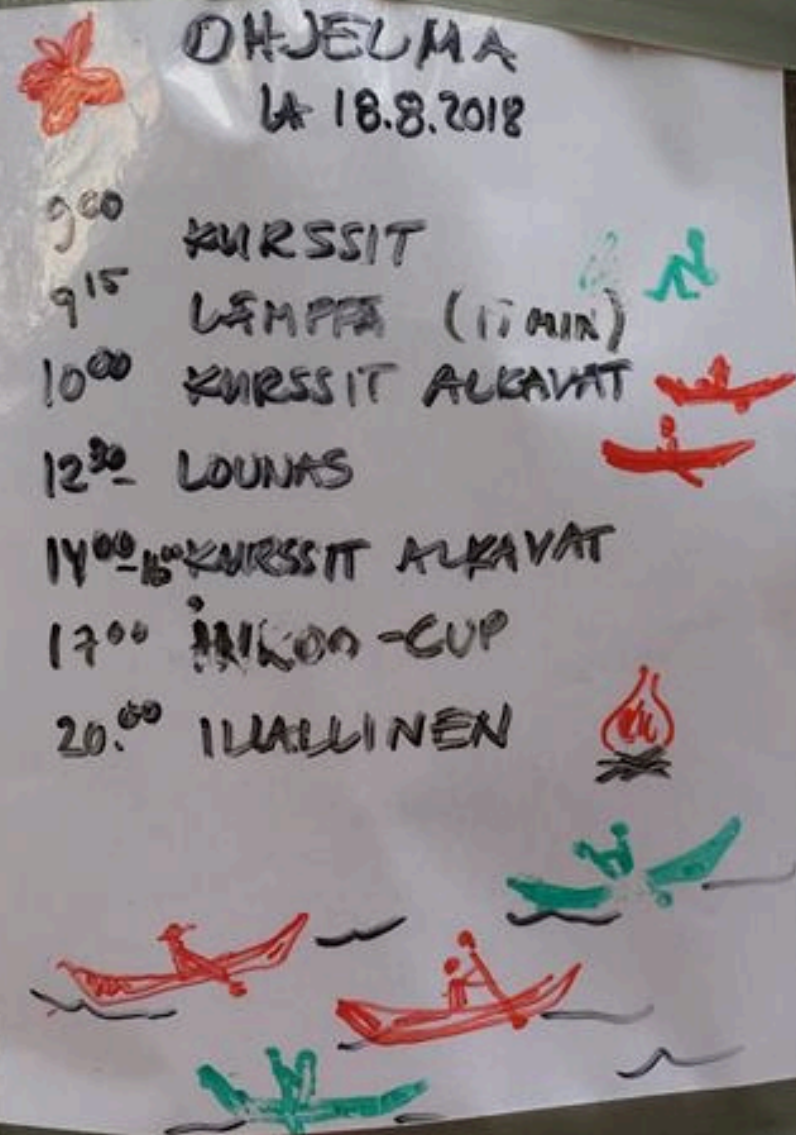 OHJELMA
LA 18.8.2018
9⁰⁰ KURSSIT
9¹⁵ LÄMPPÄ ( MIN)
10⁰⁰ KURSSIT ALKAVAT
12³⁰- LOUNAS
14⁰⁰-16⁰⁰ KURSSIT ALKAVAT
17⁰⁰ -CUP
20.⁰⁰ ILLALLINEN